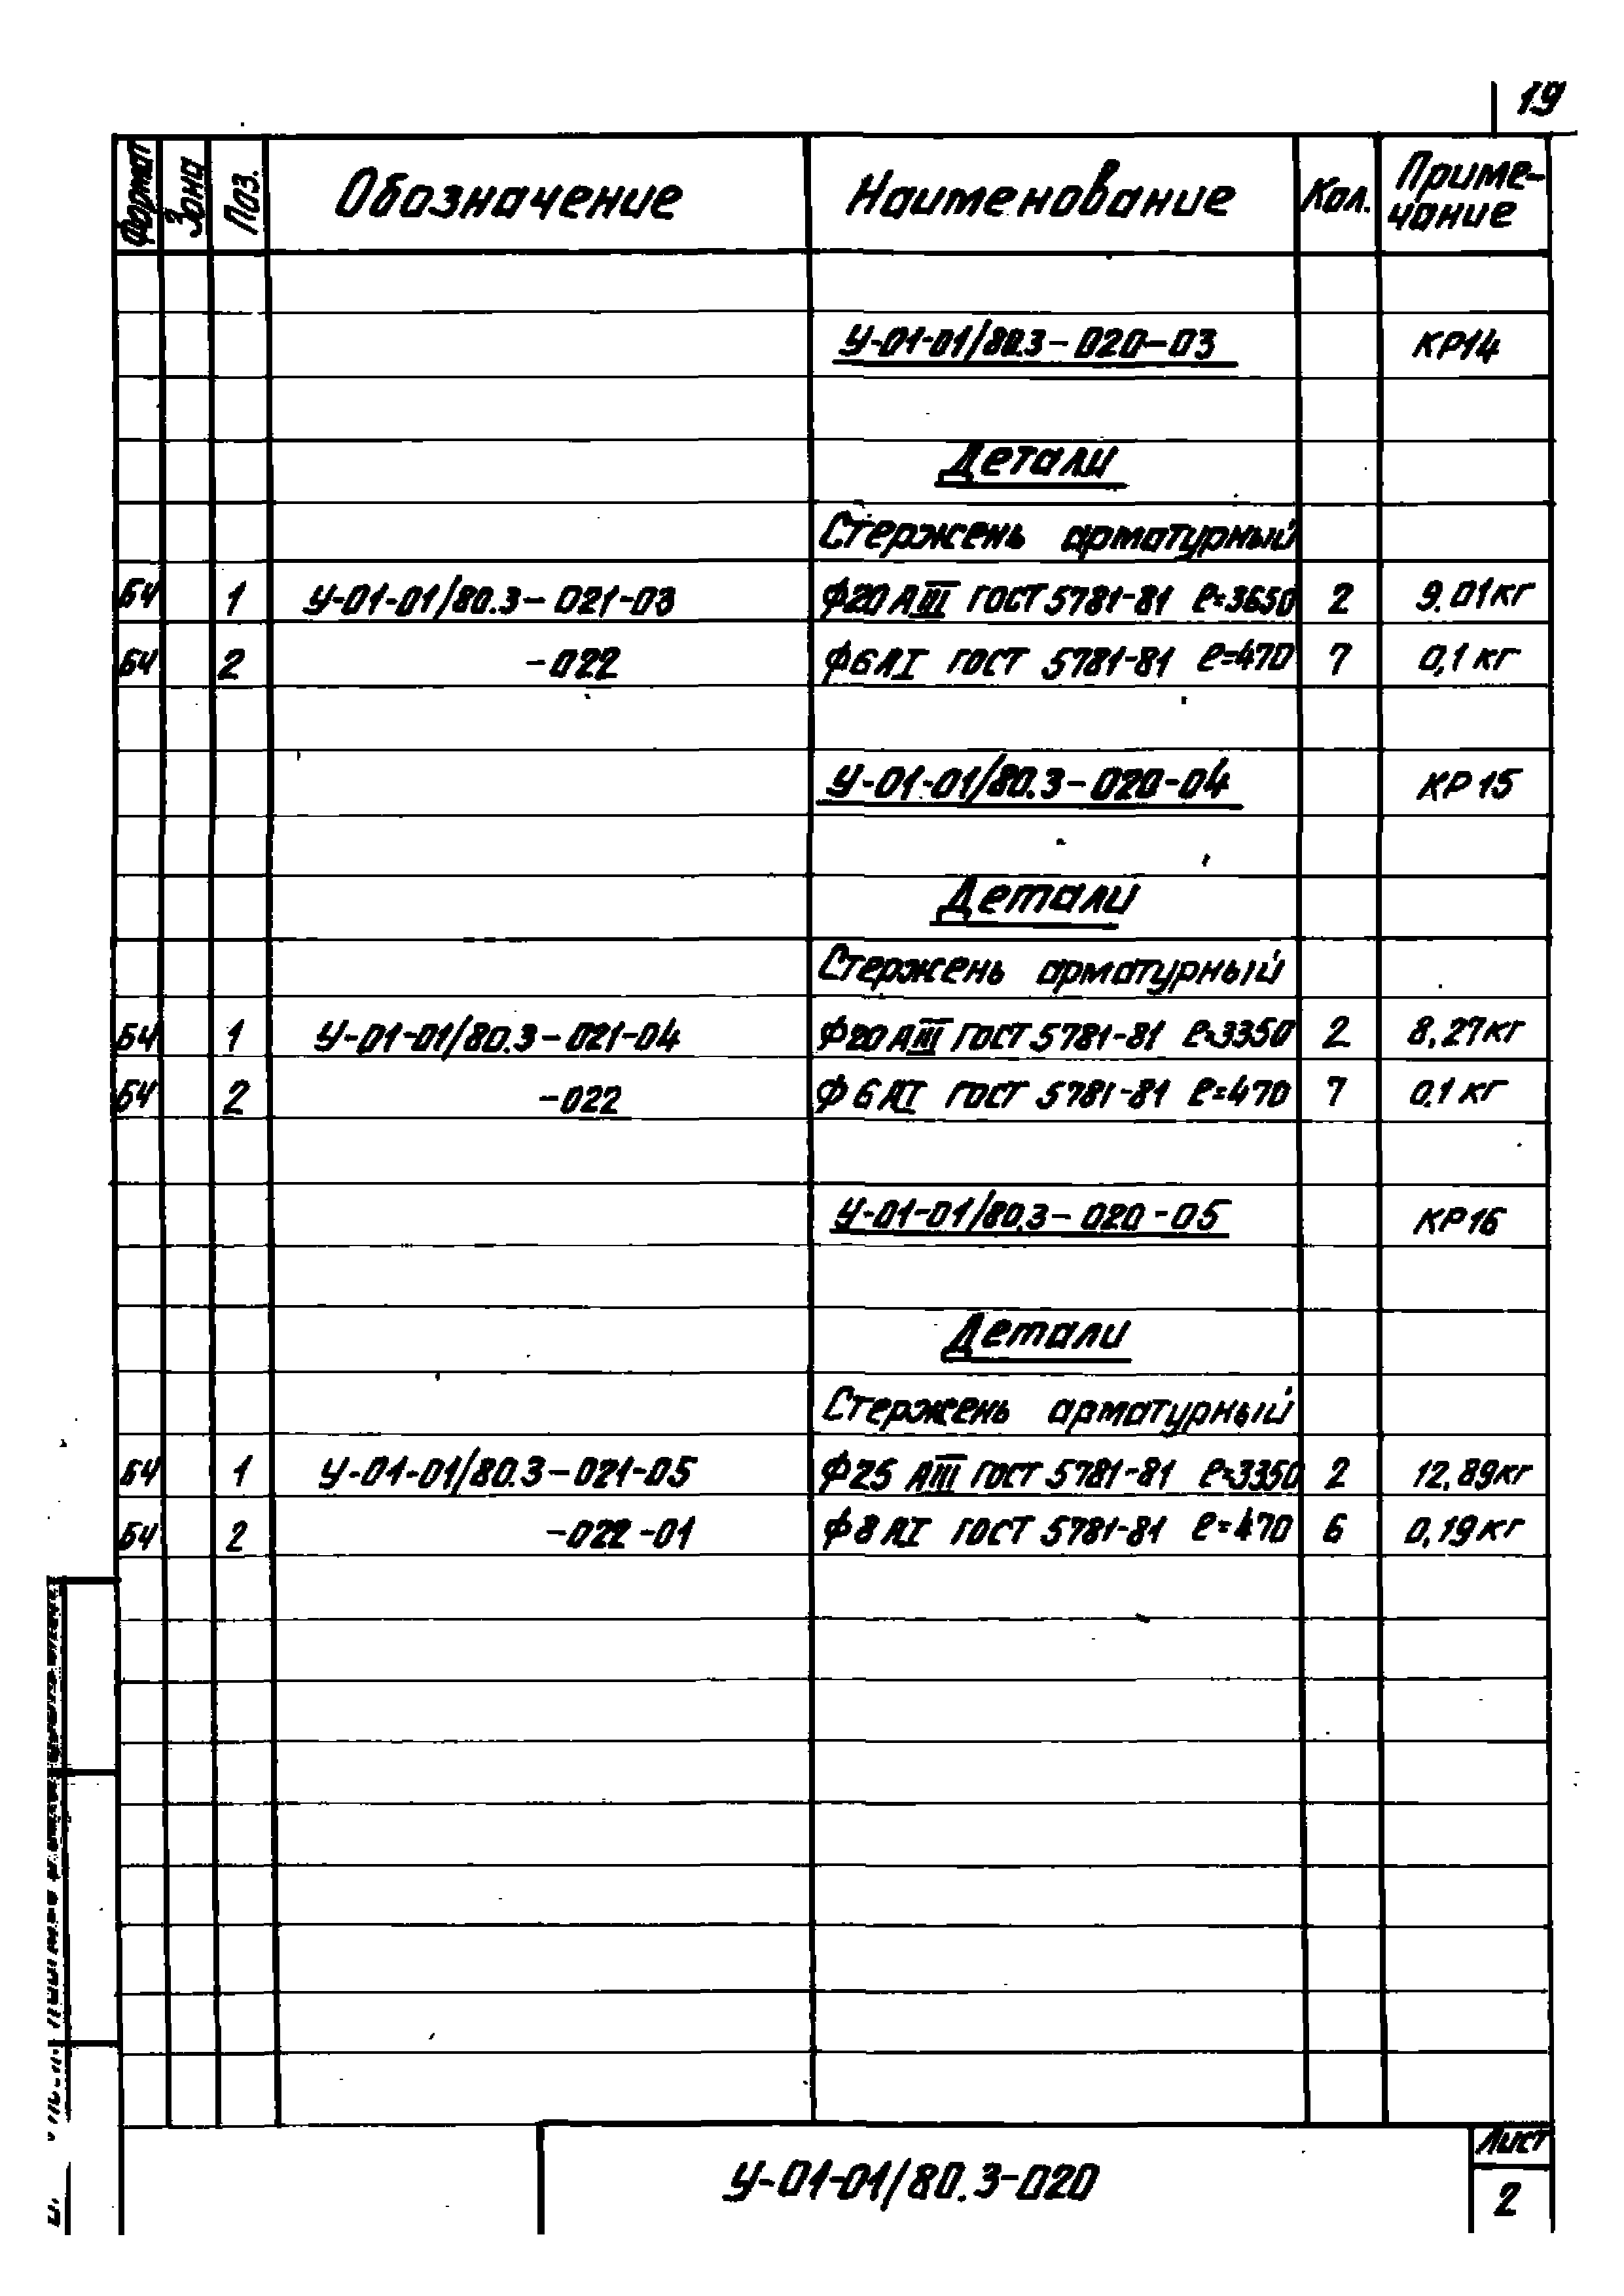 19
Формат Зона Поз. Обозначение Наименование Кол. Приме-
чание
У-01-01/80.3-020-03 КР14
Детали
Стержень арматурный
БЧ 1 У-01-01/80.3-021-03 Ф20 АIII ГОСТ 5781-81 ℓ=3650 2 9.01кг
БЧ 2 -022 Ф6АI ГОСТ 5781-81 ℓ=470 7 0,1 кг
У-01-01/80.3-020-04 КР15
Детали
Стержень арматурный
БЧ 1 У-01-01/80.3-021-04 Ф20 АIII ГОСТ 5781-81 ℓ=3350 2 8,27кг
БЧ 2 -022 Ф6 АI ГОСТ 5781-81 ℓ=470 7 0,1 кг
У-01-01/80.3-020-05 КР16
Детали
Стержень арматурный
БЧ 1 У-01-01/80.3-021-05 Ф25 АIII ГОСТ 5781-81 ℓ=3350 2 12,89кг
БЧ 2 -022-01 Ф8 АI ГОСТ 5781-81 ℓ=470 6 0,19кг
У-01-01/80.3-020
Лист
2